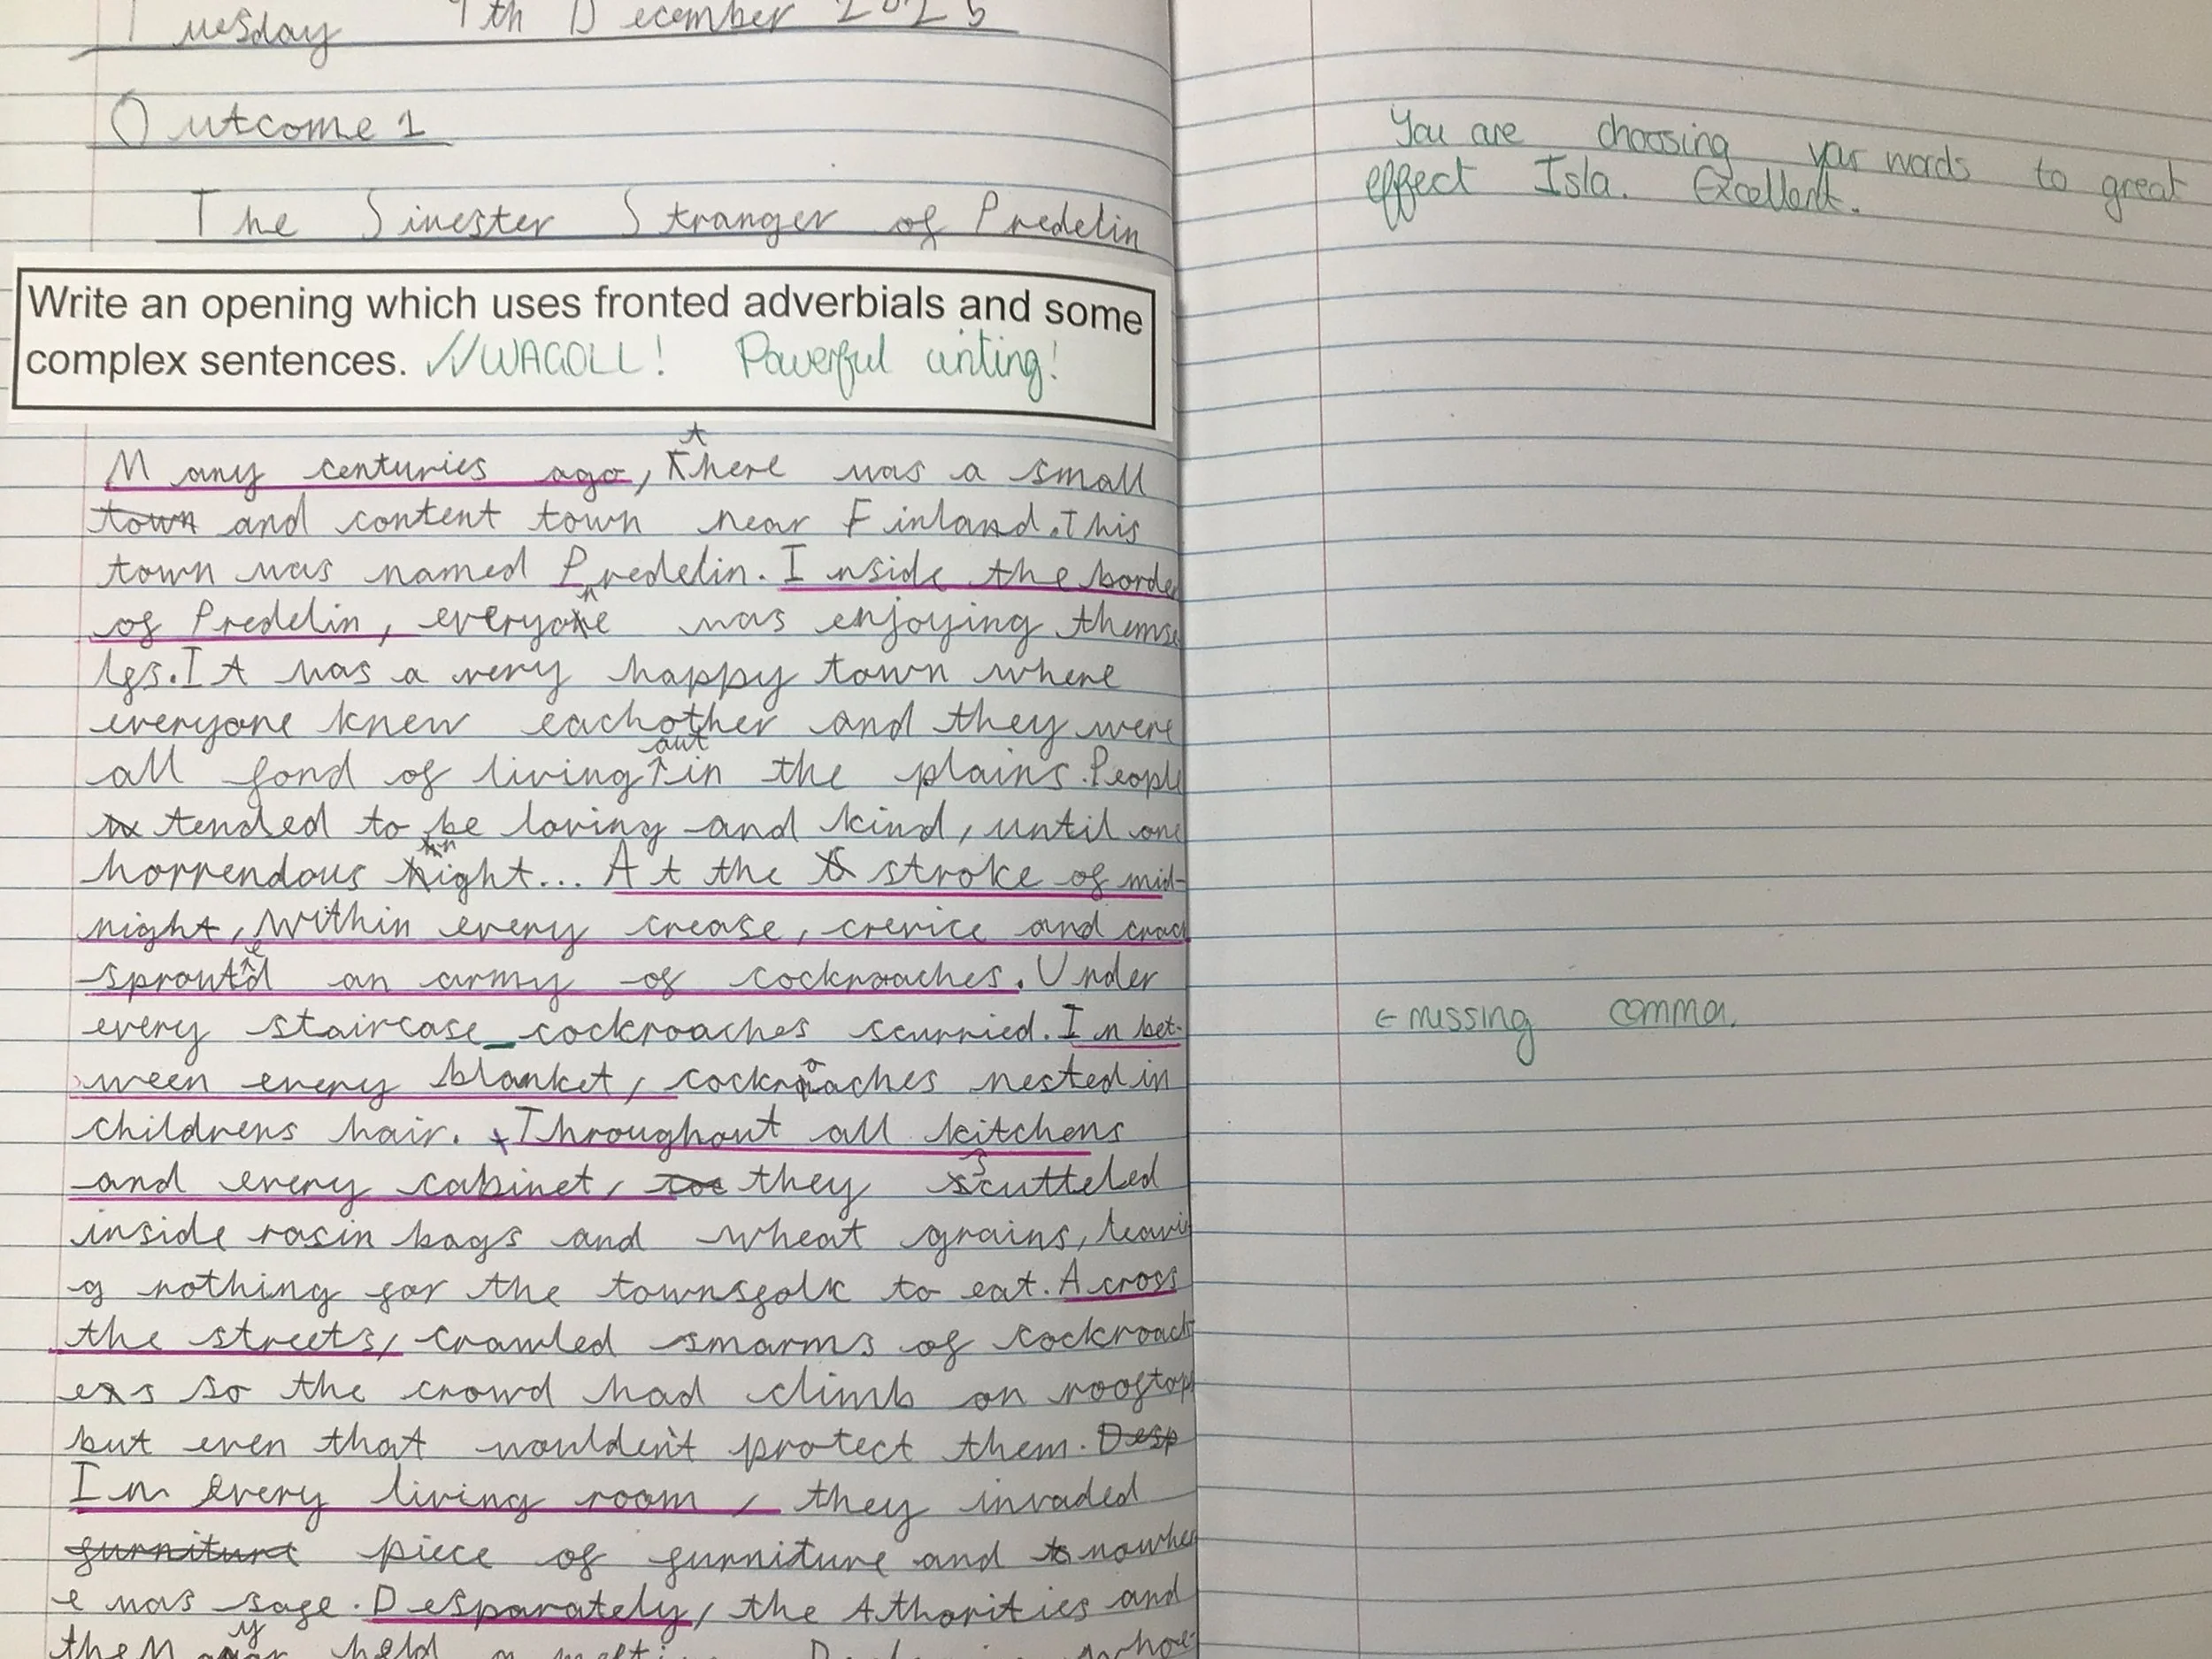 Tuesday 9th December 2025
Outcome 1
The Sinester Stranger of Predelin
You are choosing your words to great
effect Isla. Excellent.
Write an opening which uses fronted adverbials and some
complex sentences. ✓✓WAGOLL! Powerful writing!
Many centuries ago, there was a small
town and content town near Finland. This
town was named Predelin. Inside the borde
of Predelin, everyone was enjoying themse
lfs. It was a very happy town where
everyone knew eachother and they were
all fond of living out in the plains. People
tended to be loving and kind, until one
horrendous night... At the stroke of mid-
night, within every crease, crevice and crack
sprouted an army of cockroaches. Under
every staircase_cockroaches scurried. In bet-
← missing comma.
ween every blanket, cockroaches nested in
childrens hair. Throughout all kitchens
and every cabinet, they scutteled
inside rasin bags and wheat grains, leavin
g nothing for the townsfolk to eat. Across
the streets, crawled smarms of cockroach
es so the crowd had climb on rooftop
but even that woulden't protect them. Desp
In every living room, they invaded
furniture piece of furniture and nowher
e was safe. Desparately, the Athorities and
the Mayor held a